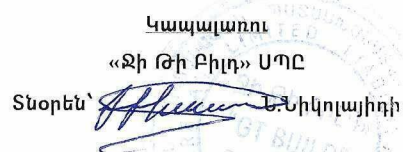 Կապալառու
«Ջի Թի Բիլդ» ՍՊԸ
Տնօրեն՝ Ն.Նիկոլայիդի